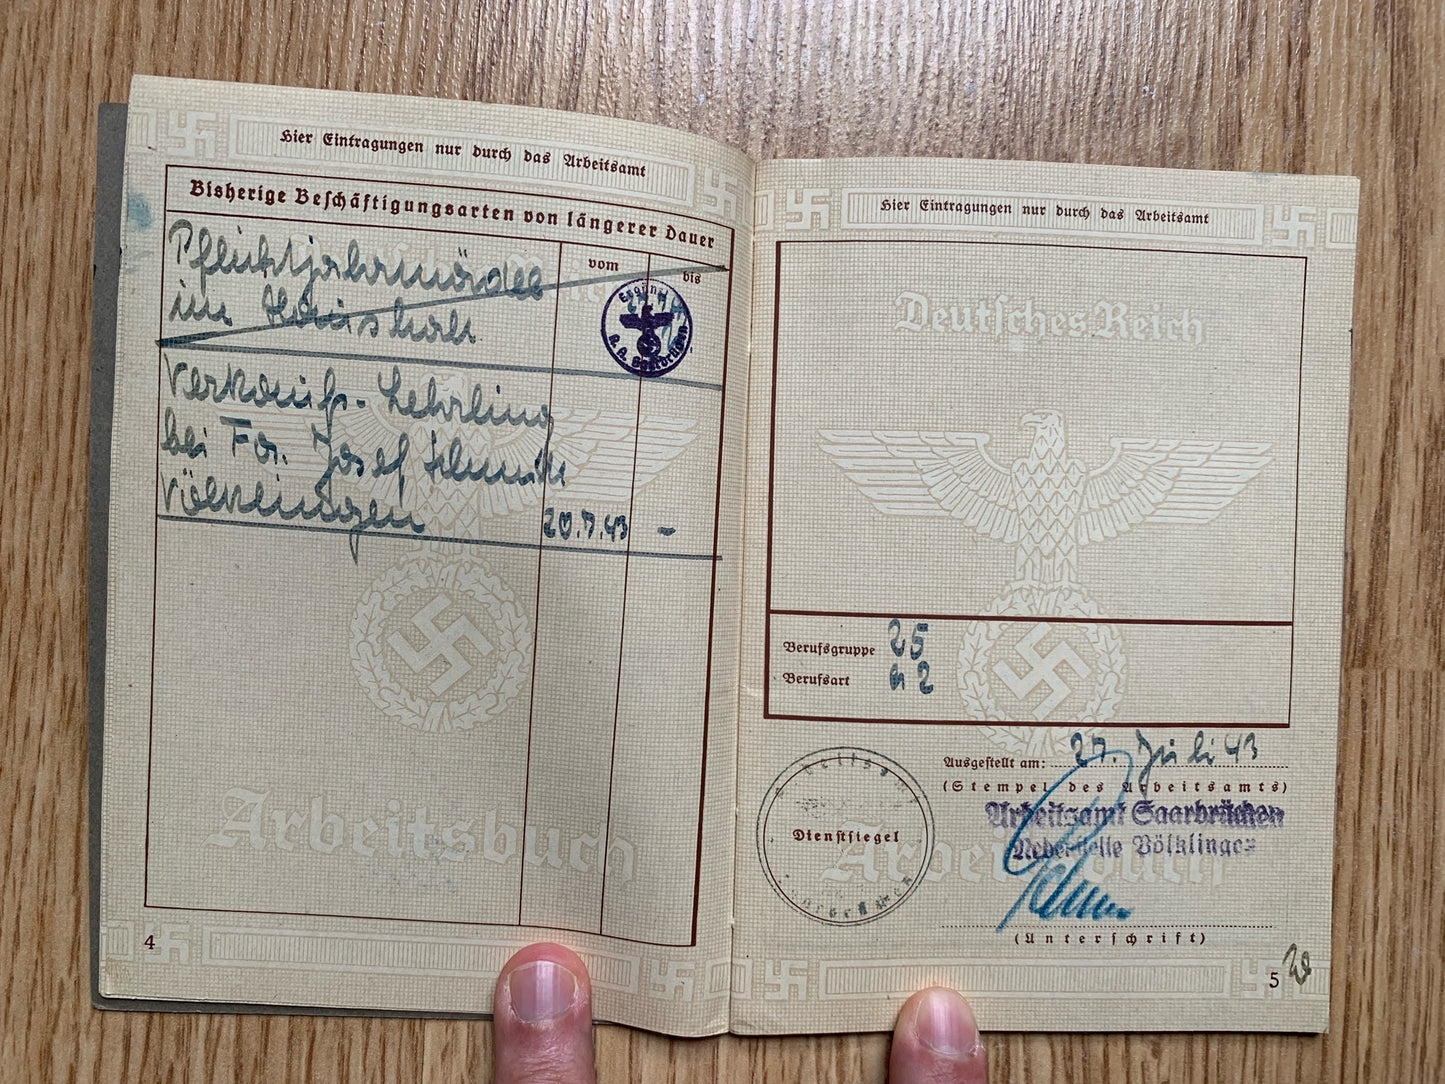 Hier Eintragungen nur durch das Arbeitsamt
Bisherige Beschäftigungsarten von längerer Dauer
vom
bis
Pflichtjahrmädel
im Haushalt
Ergänzt
A. A. Saarbrücken
Verkaufs-Lehrling
bei Fa. Josef Schmitt
Völklingen 20.7.43 -
Arbeitsbuch
4
Hier Eintragungen nur durch das Arbeitsamt
Deutsches Reich
Berufsgruppe 25
Berufsart a 2
Ausgestellt am: 27. Juli 43
(Stempel des Arbeitsamts)
Arbeitsamt Saarbrücken
Nebenstelle Völklingen
Dienstsiegel
Arbeitsbuch
(Unterschrift)
5